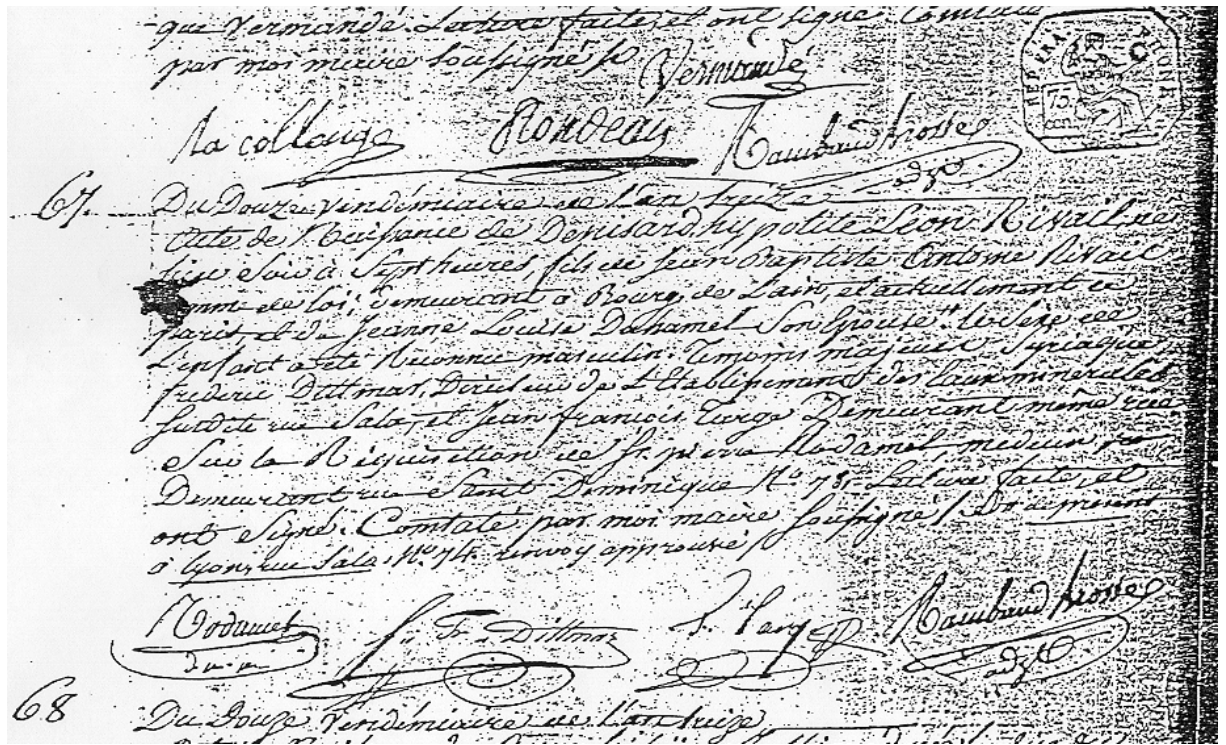 que Vermandé. Lecture faite, et ont signé. Constaté
par moi maire soussigné
Vermandé
la collonge Rondeau Rambaud
REP FRA
75
67. Du Douze Vendémiaire de l'an treize
Acte de Naissance de Denisard hypolite Léon Rivail né
hier soir à Sept heures, fils de Jean Baptiste Antoine Rivail
homme de loi, demeurant à Bourg de L'ain, et actuellement à
paris, et de Jeanne Louise Duhamel Son épouse. le Sexe de
L'enfant a été Reconnu masculin. Témoins majeurs Syriaque
fréderic Dittmar, Directeur de L'Etablissement des Eaux minérales
susdite rue Sala, et Jean françois Targe Demeurant même rue
Sur la Réquisition de Sr. pierre Rodamel, médecin
Demeurant rue Saint Dominique No. 78. Lecture faite, et
ont Signé. Constaté par moi maire soussigné
à lyon, rue Sala No. 74 renvoy approuvé
Rodamel Dittmar Targe Rambaud
68 Du Douze Vendémiaire de l'an treize